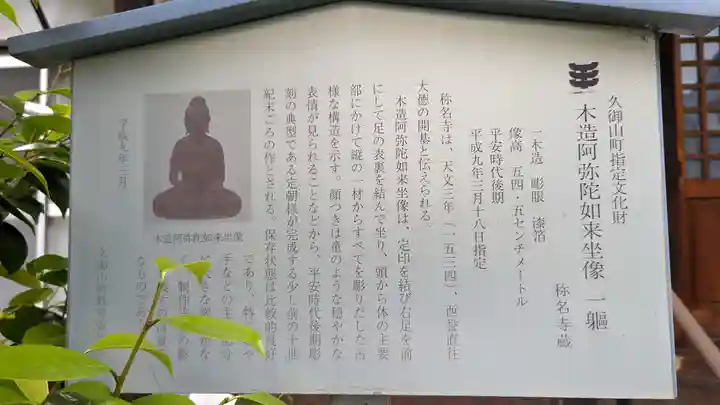 久御山町指定文化財
木造阿弥陀如来坐像 一軀
称名寺蔵
一木造 彫眼 漆箔
像高 五四・五センチメートル
平安時代後期
平成九年三月十八日指定
称名寺は、天文三年（一五三四）、西誉直往
大徳の開基と伝えられる。
木造阿弥陀如来坐像は、定印を結び右足を前
にして足の表裏を結んで坐り、頭から体の主要
部にかけて縦の一材からすべてを彫りだした古
様な構造を示す。顔つきは童のような穏やかな
表情が見られることなどから、平安時代後期彫
刻の典型である定朝様が完成する少し前の十世
紀末ごろの作とされる。保存状態は比較的良好
であり、
手などの主
制作
なもので
平成九年三月
木造阿弥陀如来坐像